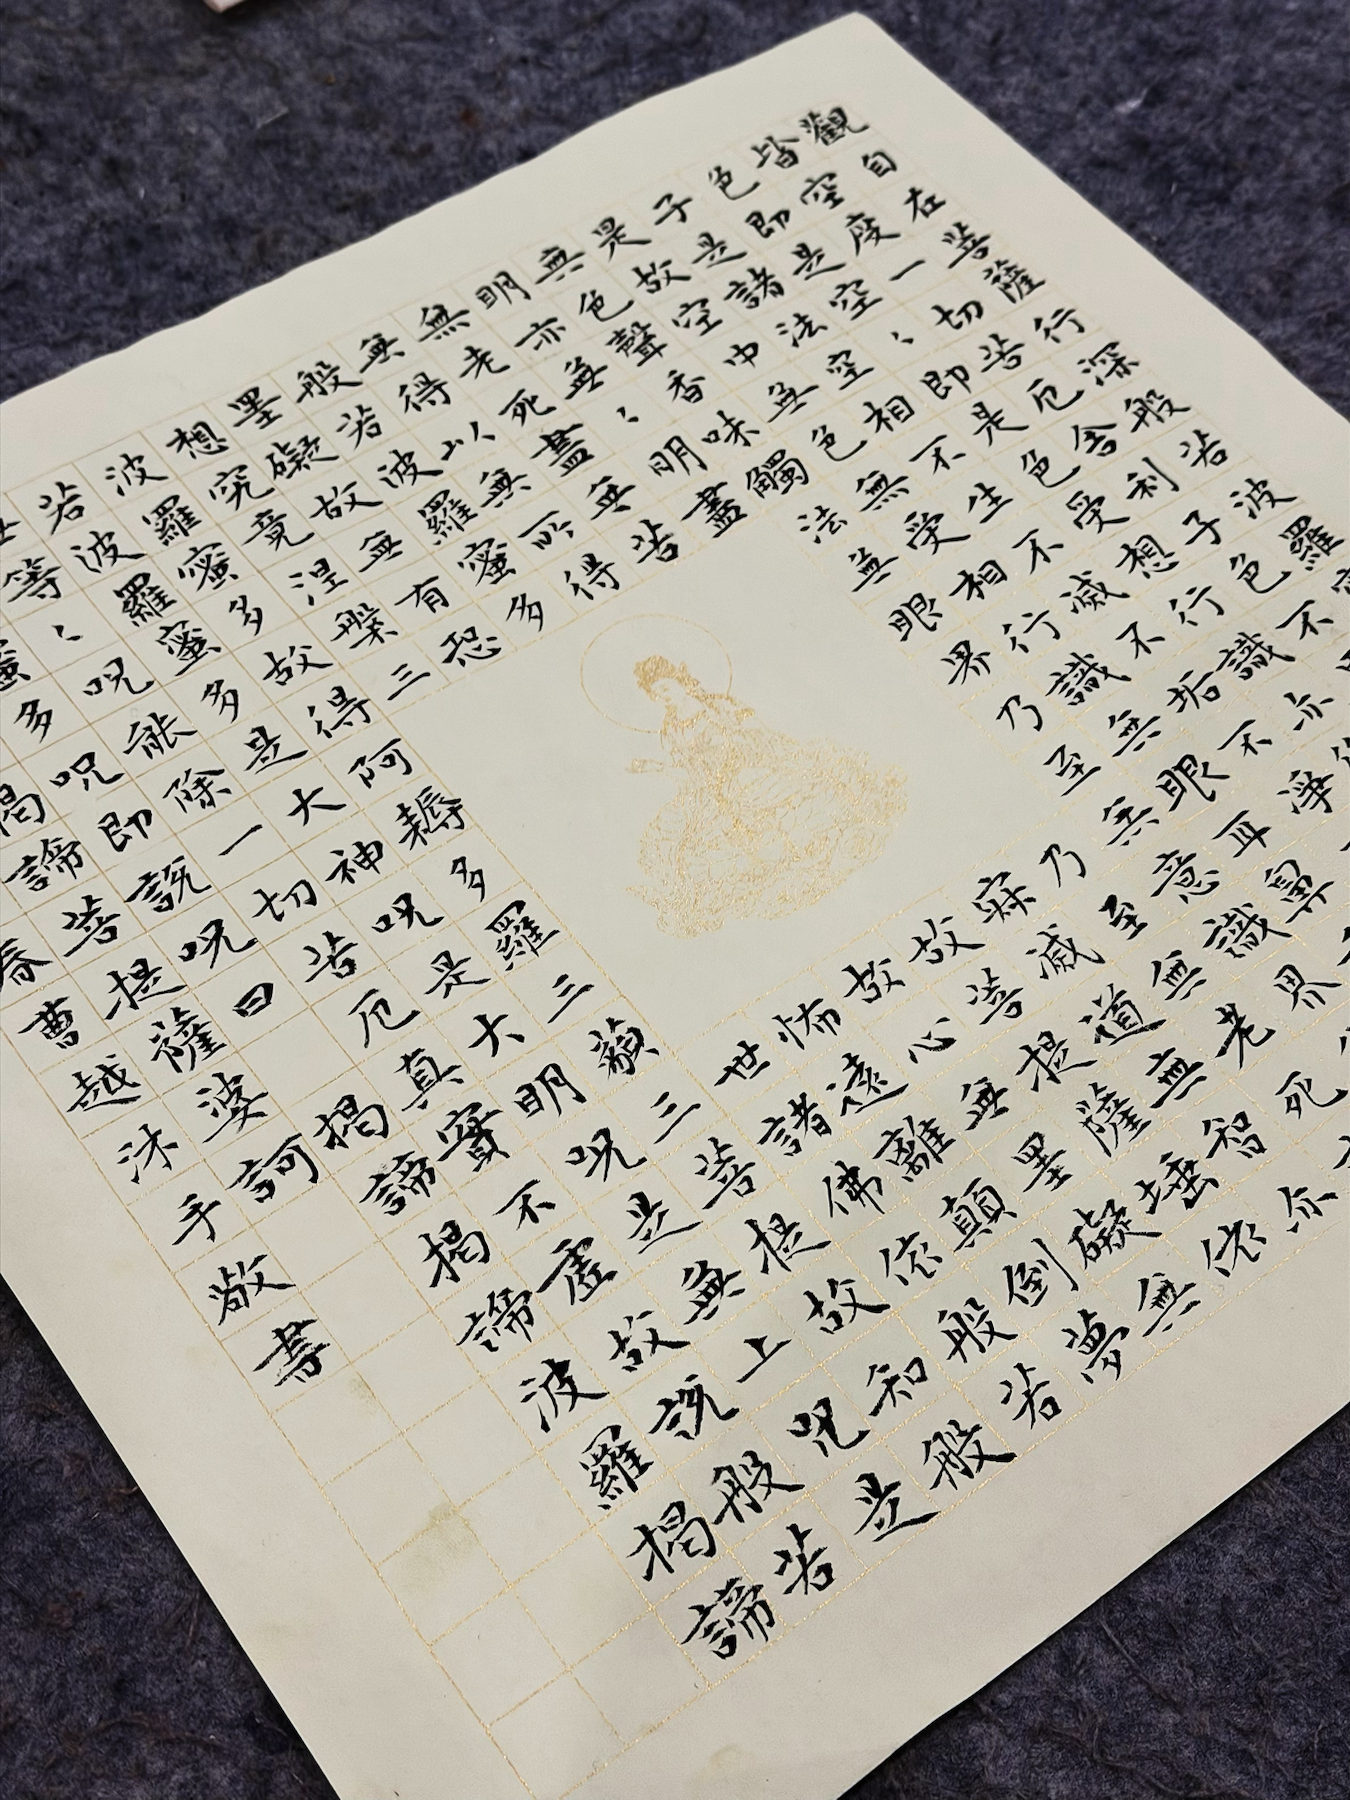 觀自在菩薩行深般若波羅蜜
皆空度一切苦厄舍利子色不
色即是空、即是色受想行識亦
子是諸法空相不生不滅不垢不淨
是故空中無色無受相行識無眼耳鼻
無色聲香味觸法無眼界乃至無意識界
明亦無、明盡乃至無老死
無老死盡無苦寂滅道無智亦
無得以無所得故菩提薩埵依
般若波羅蜜多故心無罣礙無
罣礙故無有恐怖遠離顛倒夢
想究竟涅槃三世諸佛依般若
波羅蜜多故得阿耨多羅三藐三菩提故知般
若波羅蜜多是大神咒是大明咒是無上咒是
無等、咒能除一切苦厄真實不虛故說般若
蜜多咒即說咒曰揭諦揭諦波羅揭諦
揭諦菩提薩婆訶
春曹越沐手敬書